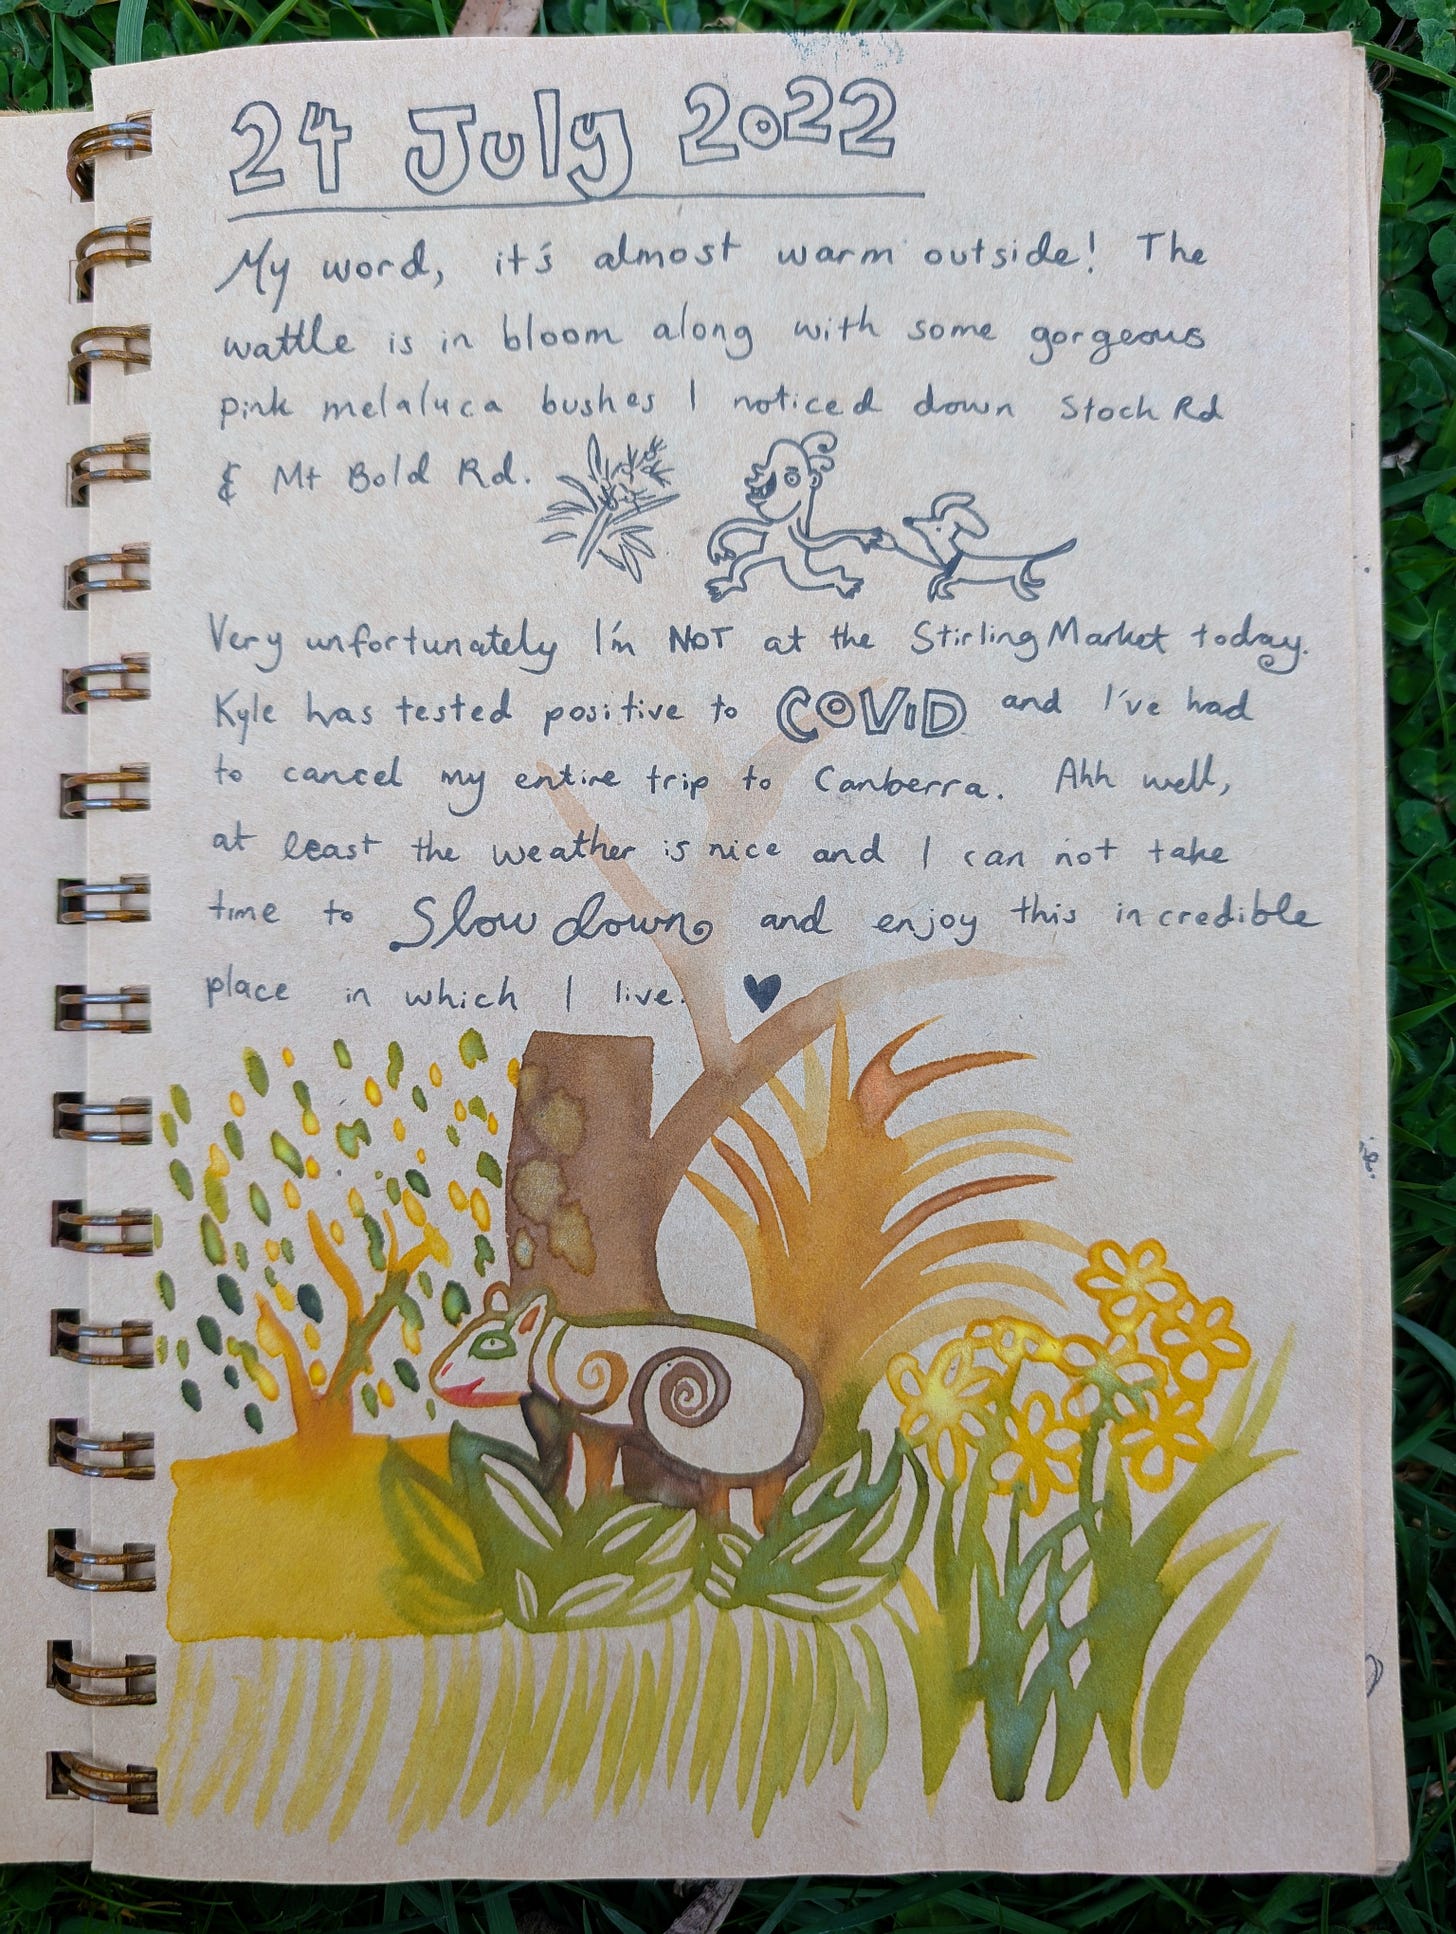 24 July 2022
My word, it's almost warm outside! The
wattle is in bloom along with some gorgeous
pink melaluca bushes I noticed down Stock Rd
& Mt Bold Rd.
Very unfortunately I'm NOT at the Stirling Market today.
Kyle has tested positive to COVID and I've had
to cancel my entire trip to Canberra. Ahh well,
at least the weather is nice and I can not take
time to Slow down and enjoy this incredible
place in which I live. ♥